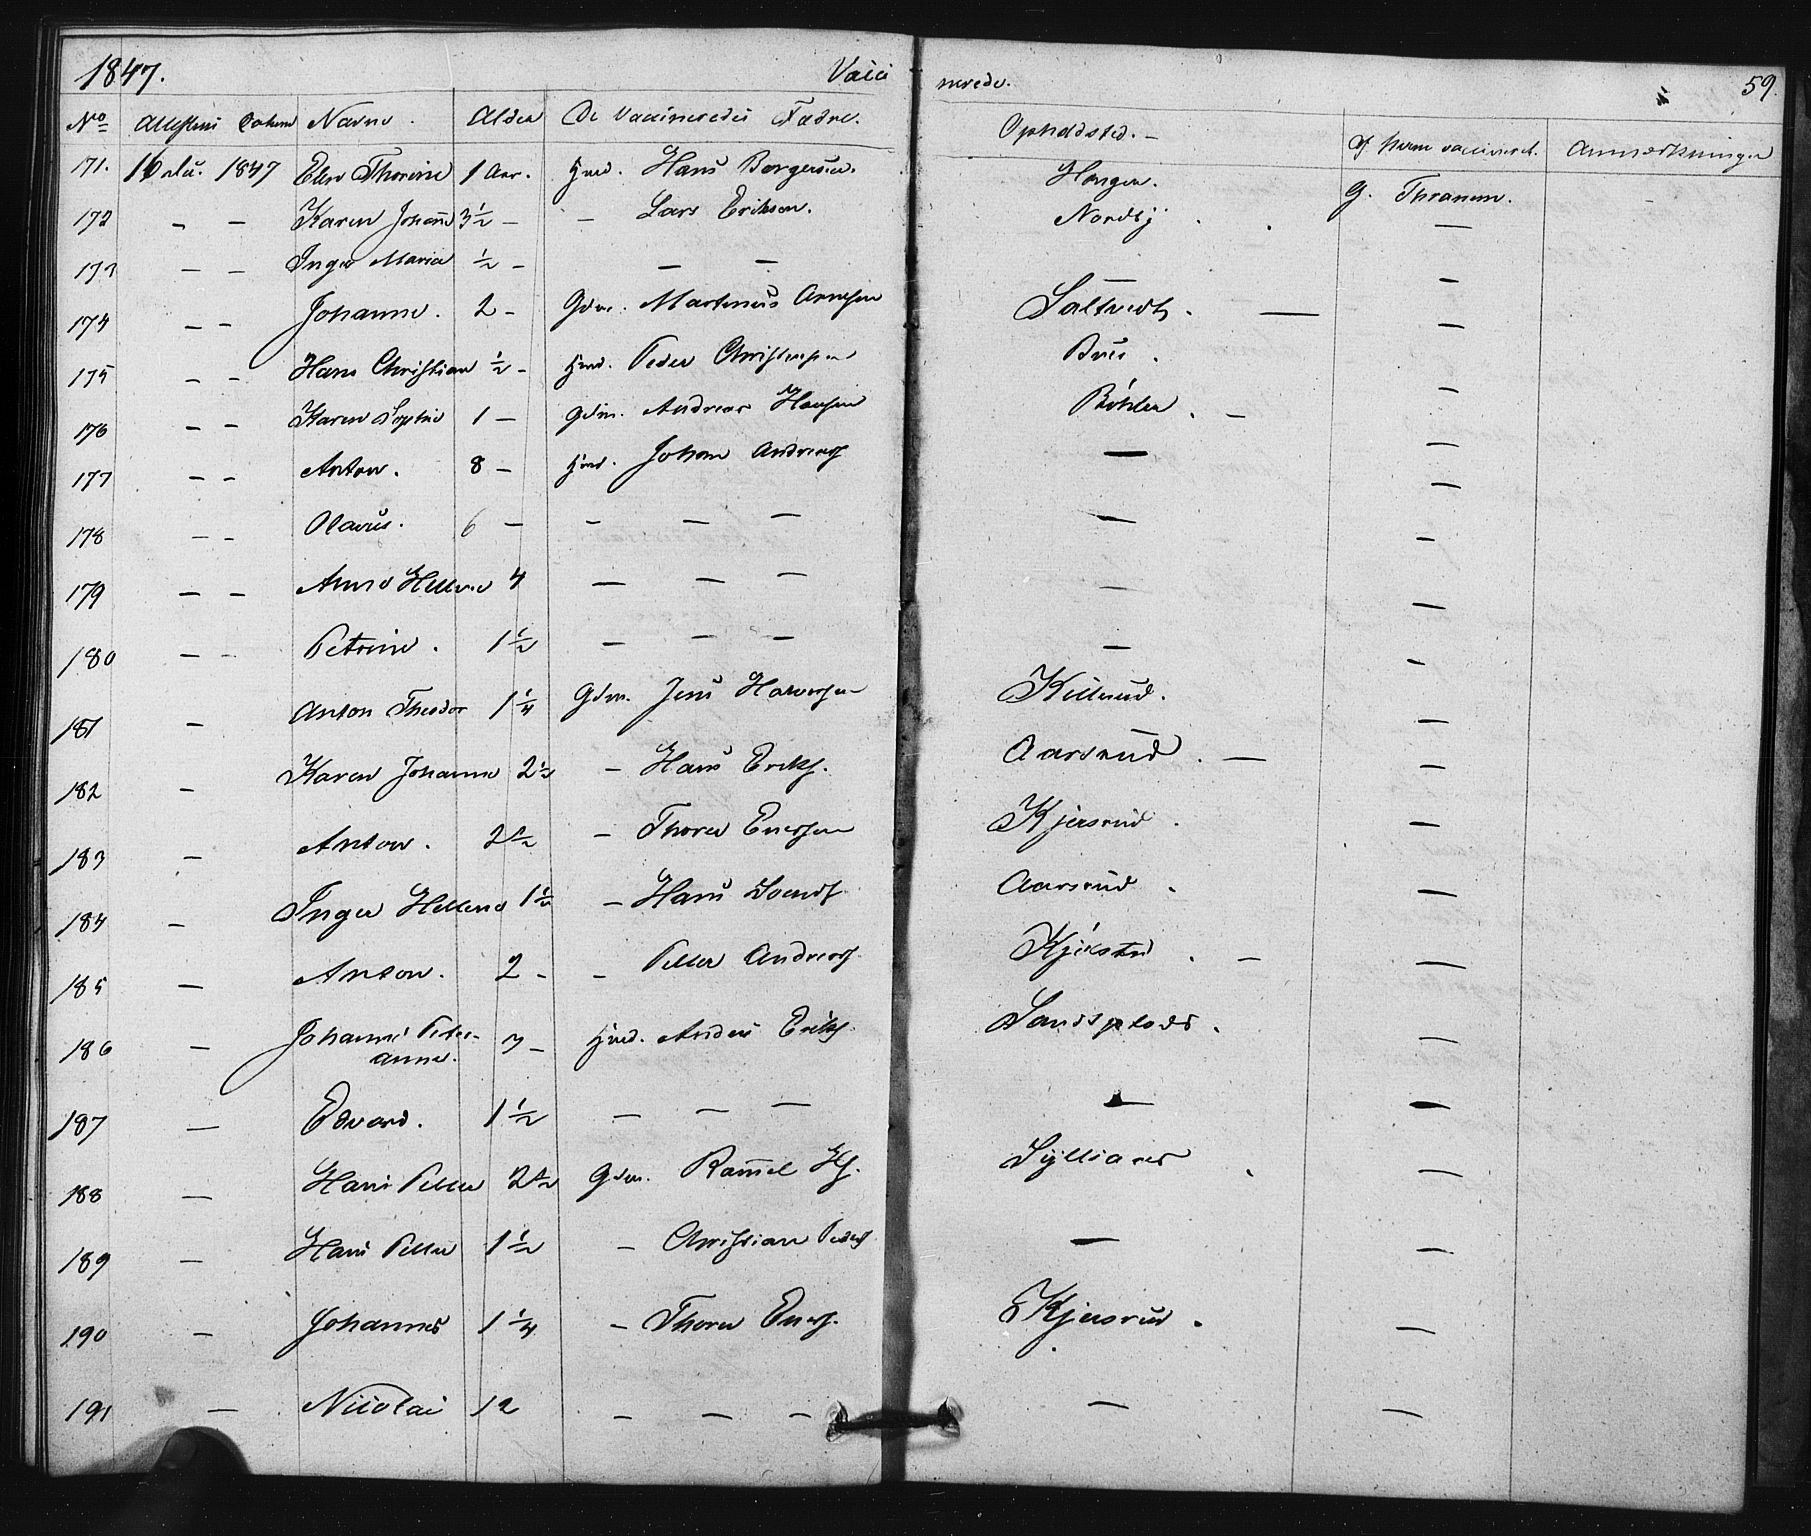 1847. Vacci nerede. 59.
No Attestens Datum Navne. Alder De Vaccineredes Fædre. Opholdsted.- Af hvem vaccineret. Anmærkninger
171. 1847 Else Thorine 1 Aar. Hans Borgersen. G. Thranem.
172 - - Karen Johanne 3½ - - Lars Erikson. Nordby. -
173 - - Inger Maria ½ - - - - -
174 - - Johanne. 2 - Gdm. Martinus Arnesen Saltvedt. - -
175 - - Hans Christian ½ - Peder Christensen -
176 - - Karen Sophie 1 - Gdm. Andreas Hansen Böhler. - -
177 - - Anton. 8 - Johan Andreas - -
178 - - Olavus. 6 - - - - - -
179 - - Anne Hellene 4 - - - - -
180 - - Petrine. 1½ - - - - -
181 - Anton Theodor 1¼ Gdm. Jens Halvorsen Killerud. -
182 - Karen Johanne 2½ - Hans Eriks. Aarsrud. - -
183 - Anton. 2½ - Thorer Enersen Kjersrud. -
184 - Inger Hellene 1½ - Hans Aarsrud. -
185 - Anton. 2 - - Petter Andreas. Kjikstad. - -
186 - Johanne Peter- 3 - Anders Eriks. -
anne.
187 - Edvard. 1½ - - - - -
188 - Hans Petter 2½ Gdm. -
189 - Hans Petter 1½ - Christian Peders - -
190 - Johannes 1¼ - Thorer Eners. Kjersrud. -
191 - Nicolai 12 - - - - -